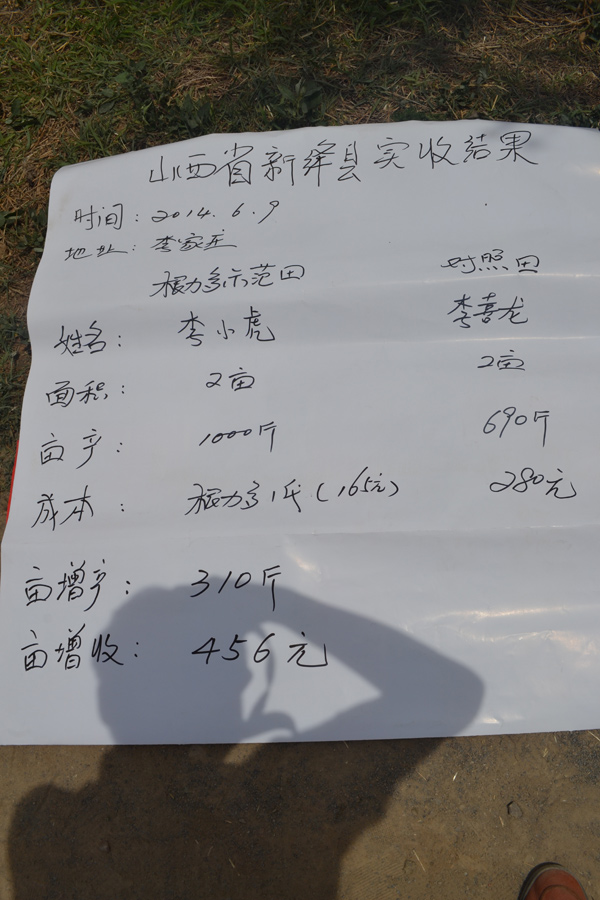 山西省新绛县实收结果
时间：2014.6.9
地址：李家庄
根力多示范田 对照田
姓名： 李小虎 李喜龙
面积： 2亩 2亩
亩产： 1000斤 690斤
成本： 根力多1代（165元） 280元
亩增产： 310斤
亩增收： 456元